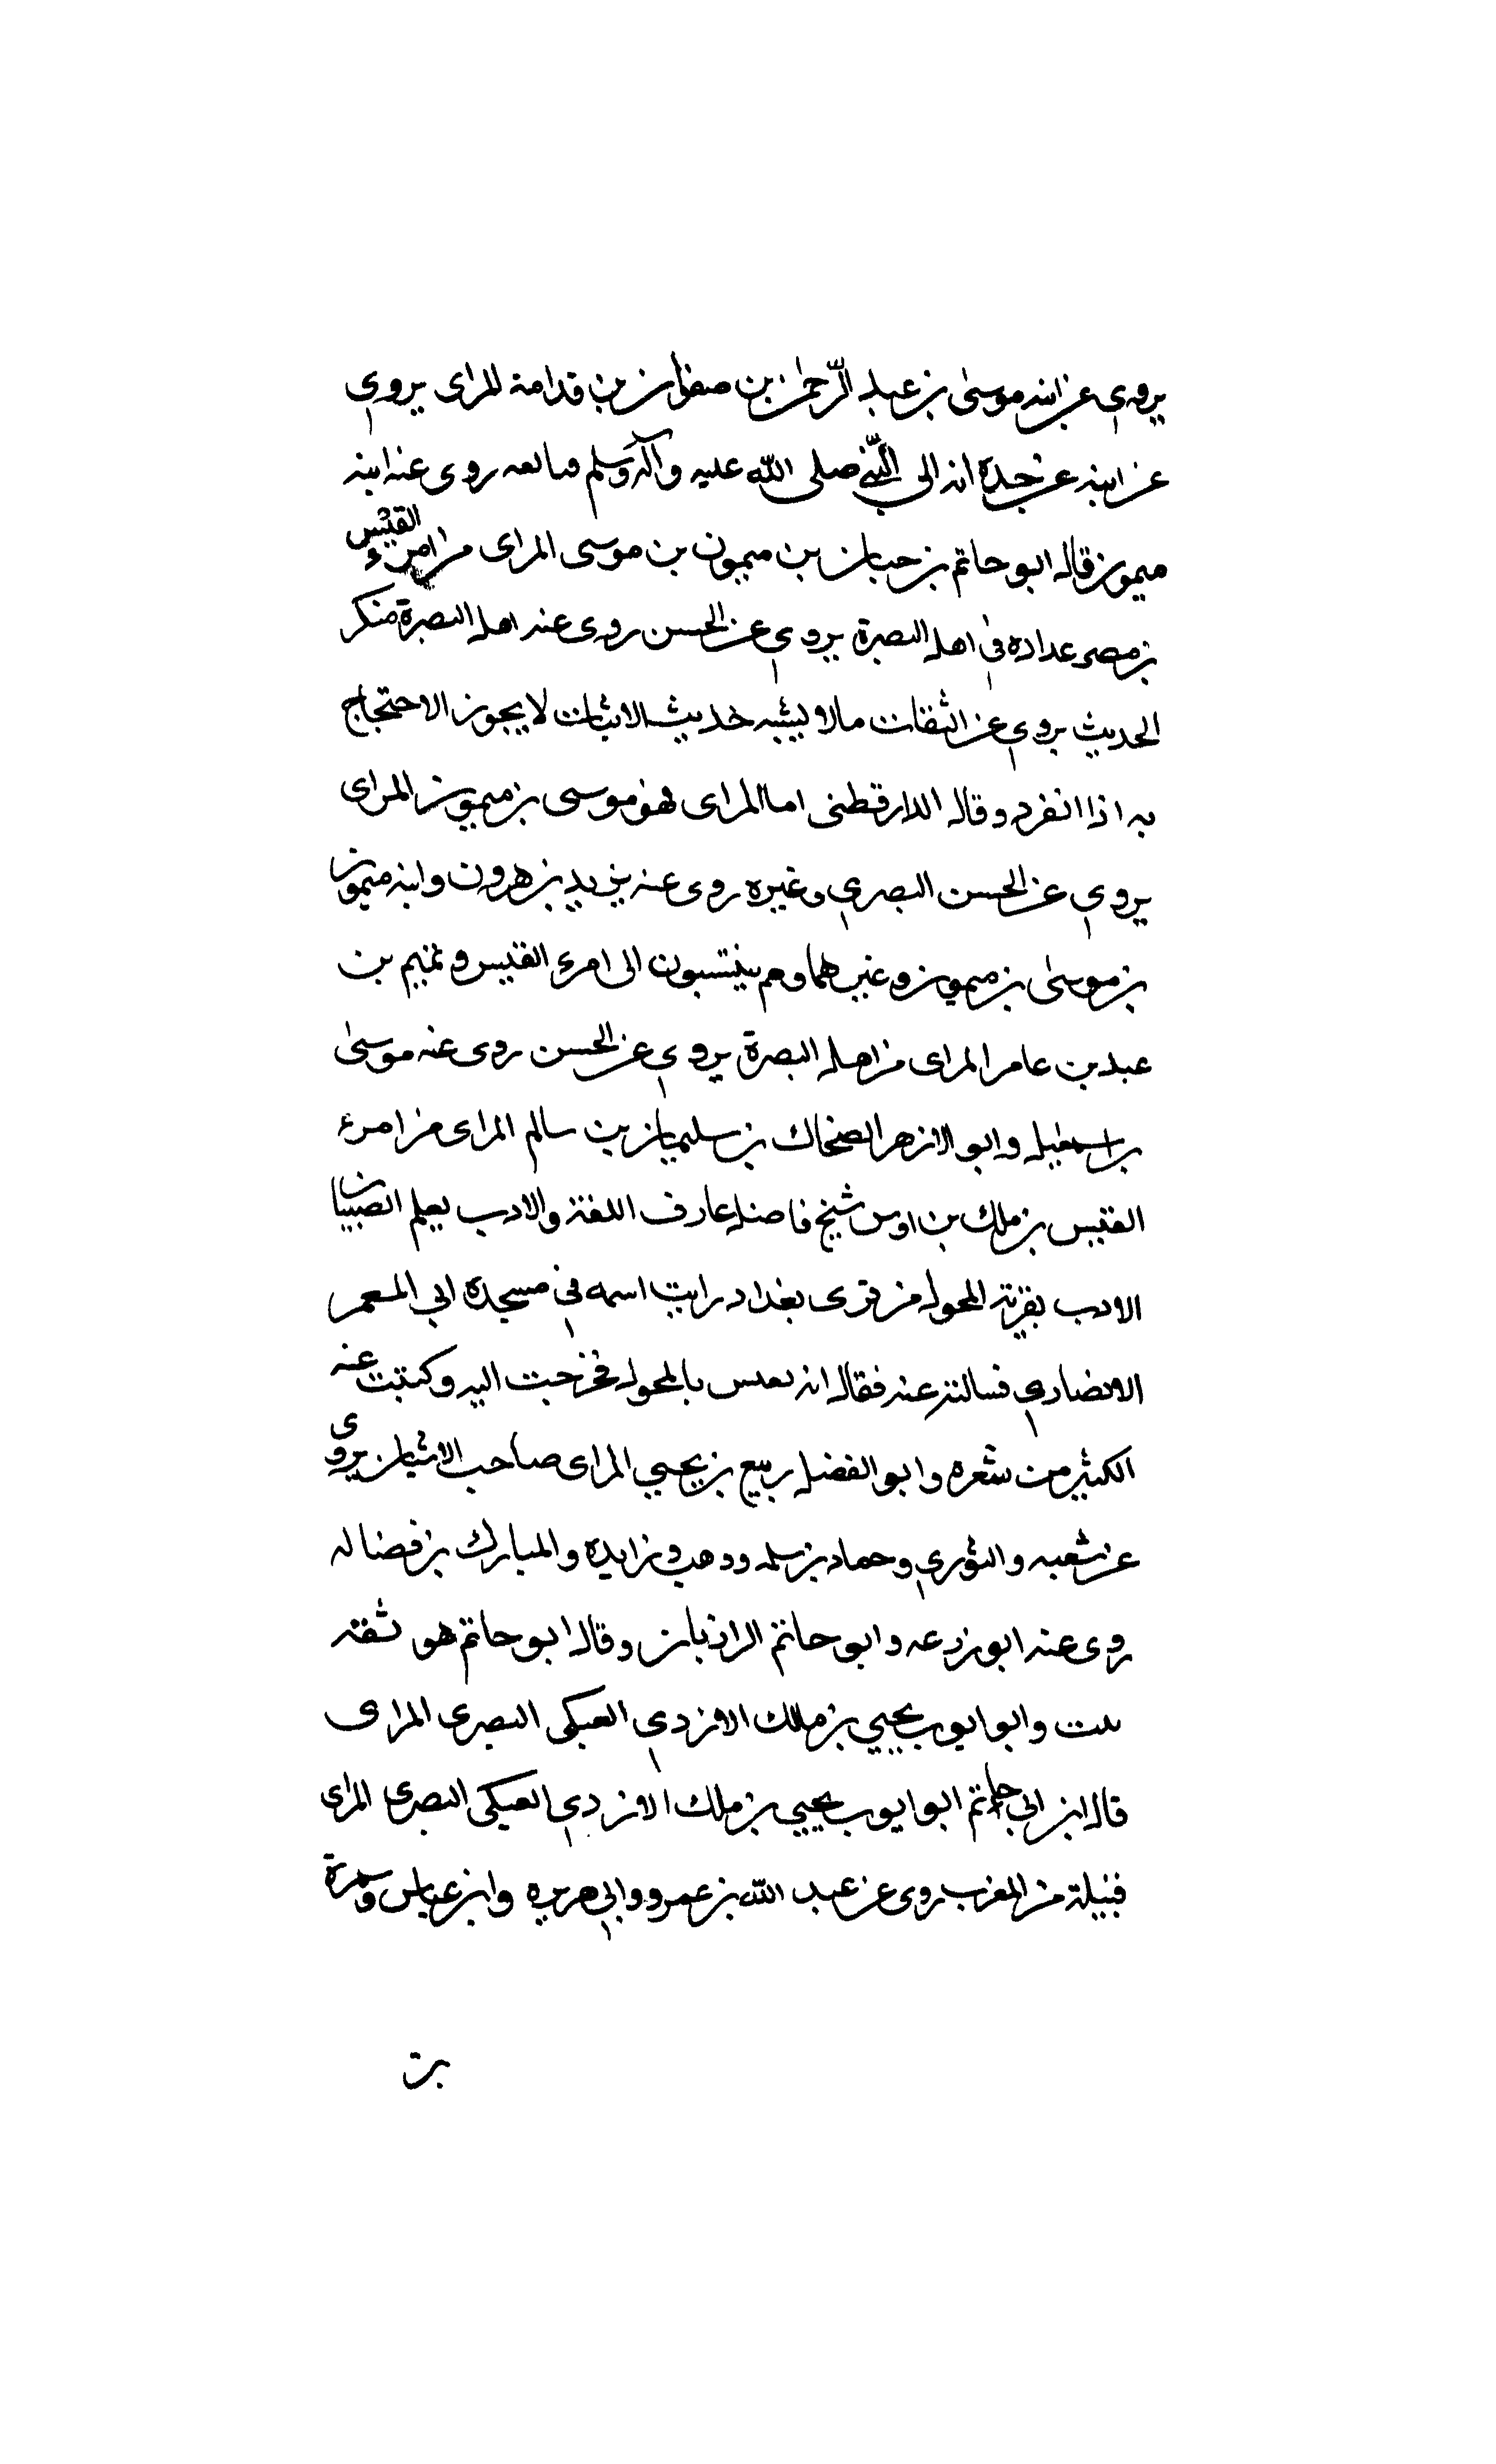 يروي عن ابيه موسى بن عبد الرّحمن بن صفوان بن قدامة المراى يروي
عن ابيه عن جده انه اتى النّبي صلى الله عليه وآله وسلم فبايعه روى عنه ابنه
ميمون قال ابو حاتم بن حبان بن ميمون بن موسى المراى من امرء القيس
بن مصر عداده في اهل البصرة يروي عن الحسن روى عنه اهل البصرة منكر
الحديث يروي عن الثقات مالا يشبه حديث الاثبات لا يجوز الاحتجاج
به اذا انفرد وقال الدارقطنى اما المراى فهو موسى بن ميمون المراى
يروي عن الحسن البصري وغيره روى عنه يزيد بن هرون وابنه ميمون
بن موسى بن ميمون وغيرهما وهم ينتسبون الى امرء القيس وتميم بن
عبد بن عامر المراى من اهل البصرة يروي عن الحسن روى عنه موسى
بن اسمعيل وابو الازهر الضحاك بن سليمان بن سالم المراى من امرء
القيس بن ملك بن اوس شيخ فاضل عارف اللغة والادب يعلم الصبيان
الادب بقرية المحول من قرى بغداد رايت اسمه في مسجده ابي المعمر
الانصاري فسالته عنه فقال انه بالمحول فخرجت اليه وكتبت عنه
الكثير من شعره وابو الفضل ربيع بن يحيي المراى صاحب الاشيان يروى
عن شعبه والثوري وحماد بن سلمه ووهب وزايده والمبارك بن فضاله
روى عنه ابو زرعه وابو حاتم الرازيان وقال ابو حاتم هو ثقه
ثبت وابو ايوب يحيي بن ملك الازدي العتكى البصرى المراى
قال ابن ابي حاتم ابو ايوب يحيي بن ملك الازدي العتكى البصرى المراى
قبيلة من المغرب روى عن عبد الله بن عمرو وابي هريره وابن عباس وسمرة
بن